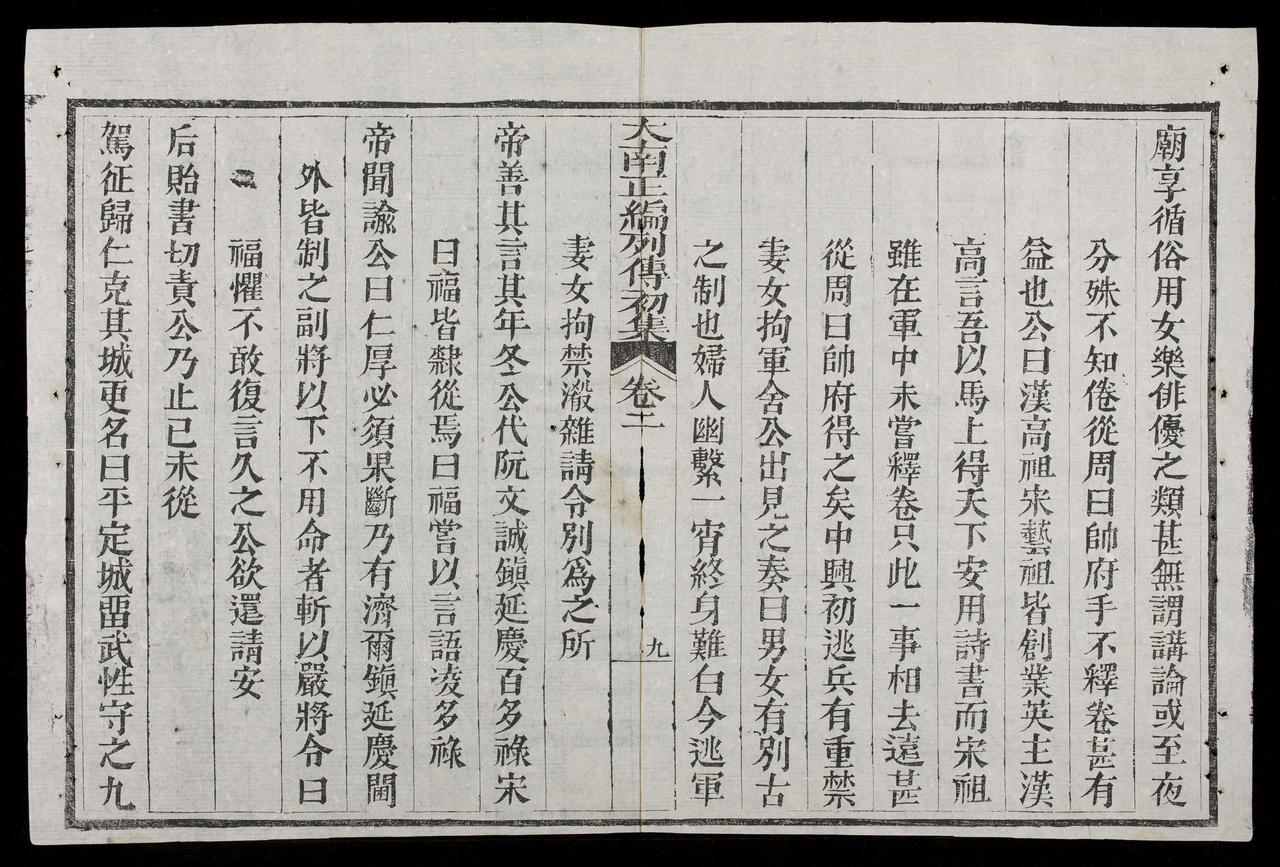 廟享循俗用女樂俳優之類甚無謂講論或至夜
分殊不知倦從周曰帥府手不釋卷甚有
益也公曰漢高祖宋藝祖皆創業英主漢
高言吾以馬上得天下安用詩書而宋祖
雖在軍中未嘗釋卷只此一事相去遠甚
從周曰帥府得之矣中興初逃兵有重禁
妻女拘軍舍公出見之奏曰男女有別古
之制也婦人幽繫一宵終身難白今逃軍
大南正編列傳初集 卷二 九
妻女拘禁殽雜請令別爲之所
帝善其言其年冬公代阮文誠鎭延慶百多祿宋
曰福皆隸從焉曰福嘗以言語凌多祿
帝聞諭公曰仁厚必須果斷乃有濟爾鎭延慶閫
外皆制之副將以下不用命者斬以嚴將令曰
福懼不敢復言久之公欲還請安
后貽書切責公乃止己未從
駕征歸仁克其城更名曰平定城畱武性守之九